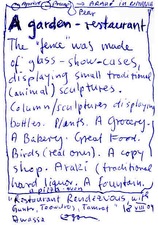 A garden-restaurant
The "fence" was made
of glass-show-cases,
displaying small traditional
(animal) sculptures.
Column/sculptures displaying
bottles. Plants. A Grocery.
A Bakery. Great Food.
Birds (real ones). A copy
shop. Araki (traditional
hard liquor. A fountain.
"Restaurant Rendezvous, with
Awassa